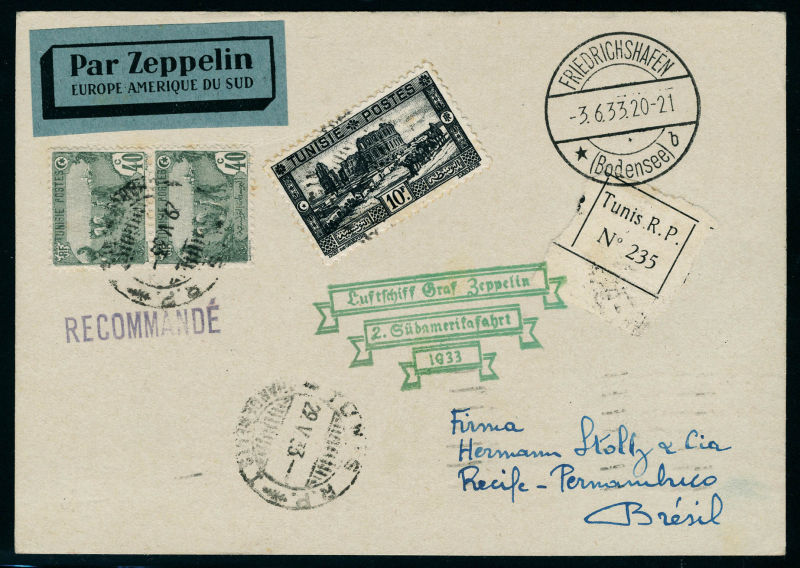 Par Zeppelin
EUROPE-AMERIQUE DU SUD
FRIEDRICHSHAFEN
-3.6.33.20-21
★ (Bodensee) b
40 c
TUNISIE POSTES
40 c
TUNISIE POSTES
TUNISIE ★ POSTES
10F
Tunis R.P.
N° 235
29 V 33
R.P.
RECOMMANDÉ
Luftschiff Graf Zeppelin
2. Südamerikafahrt
1933
TUNIS R.P.
29 V 33
Firma
Hermann Stoltz & Cia
Recife - Pernambuco
Brésil